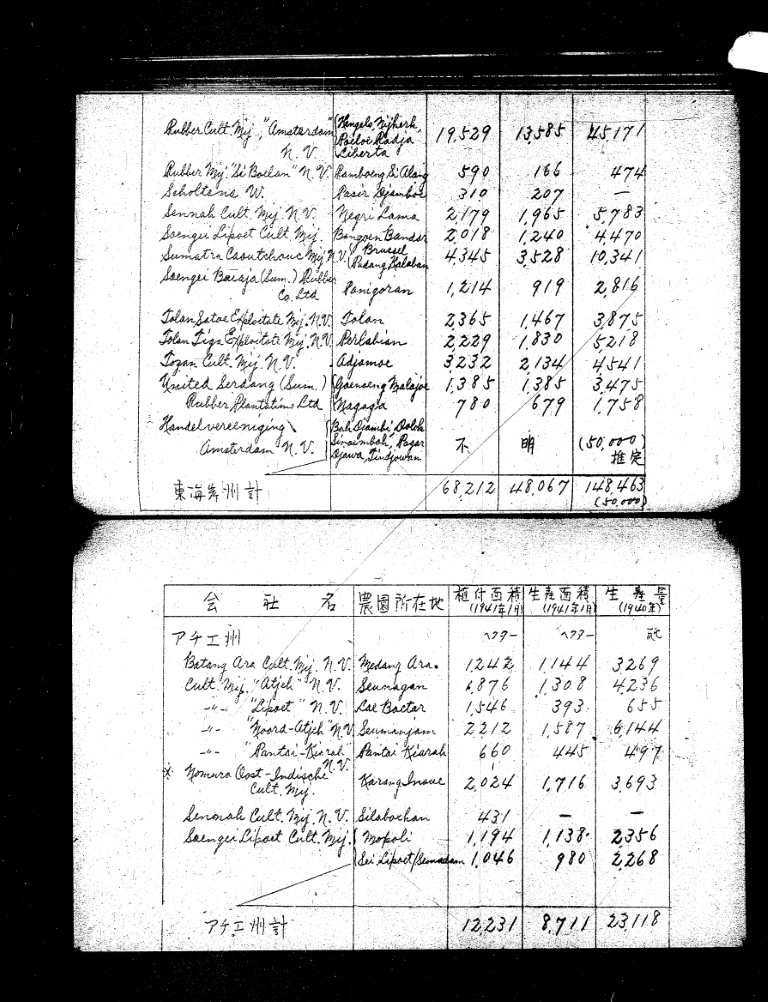 Rubber Cult. Mij. "Amsterdam" N.V. Hengelo, Nijherk, Poeloe Radja Liberta 19,529 13,585 45,171
Rubber Mij. "Si Boelan" N.V. Ramboeng Si Alang 590 166 474
Scholtens W. Pasir Djamboe 310 207 —
Sennah Cult. Mij. N.V. Negri Lama 2,179 1,965 5,783
Soengei Lipoet Cult. Mij. Bangoen Bandar 2,018 1,240 4,470
Sumatra Caoutchouc Mij. N.V. Brussel Padang Halaban 4,345 3,528 10,341
Soengei Baraja (Sum.) Rubber Co. Ltd Panigoran 1,214 919 2,816
Tolan Satoe Exploitatie Mij. N.V. Tolan 2,365 1,467 3,875
Tolan Tiga Exploitatie Mij. N.V. Perlabian 2,229 1,830 5,218
Tozan Cult. Mij. N.V. Adjamoe 3,232 2,134 4,541
United Serdang (Sum.) Goenoeng Malajoe 1,385 1,385 3,475
Rubber Plantations Ltd Nagaga 780 679 1,758
Handelvereeniging Amsterdam N.V. Bah Djambi, Dolok Sinoembah, Pagar Djawa, Tindjowan 不 明 (50,000) 推定
東海岸州計 68,212 48,067 148,463 (50,000)
会社名 農園所在地 植付面積 (1941年1月) 生産面積 (1941年1月) 生産量 (1940年)
アチエ州 ヘクター ヘクター 瓲
Batang Ara Cult. Mij. N.V. Medang Ara. 1,242 1,144 3,269
Cult. Mij. "Atjeh" N.V. Seunagan 1,876 1,308 4,236
-〃- "Lipoet" N.V. Lae Boetar 1,546 393 655
-〃- "Noord-Atjeh" N.V. Seumanjam 2212 1,587 6,144
-〃- "Pantai-Kiarah N.V. Pantai Kiarah 660 445 497
× Nomura Oost-Indische Cult. Mij. Karang Inoue 2,024 1,716 3,693
Sennah Cult. Mij. N.V. Silabochan 431 — —
Soengei Lipoet Cult. Mij. Mopoli 1,194 1,138 2356
Sei Lipoet/Semadam 1,046 980 2,268
アチエ州計 12,231 8,711 23,118